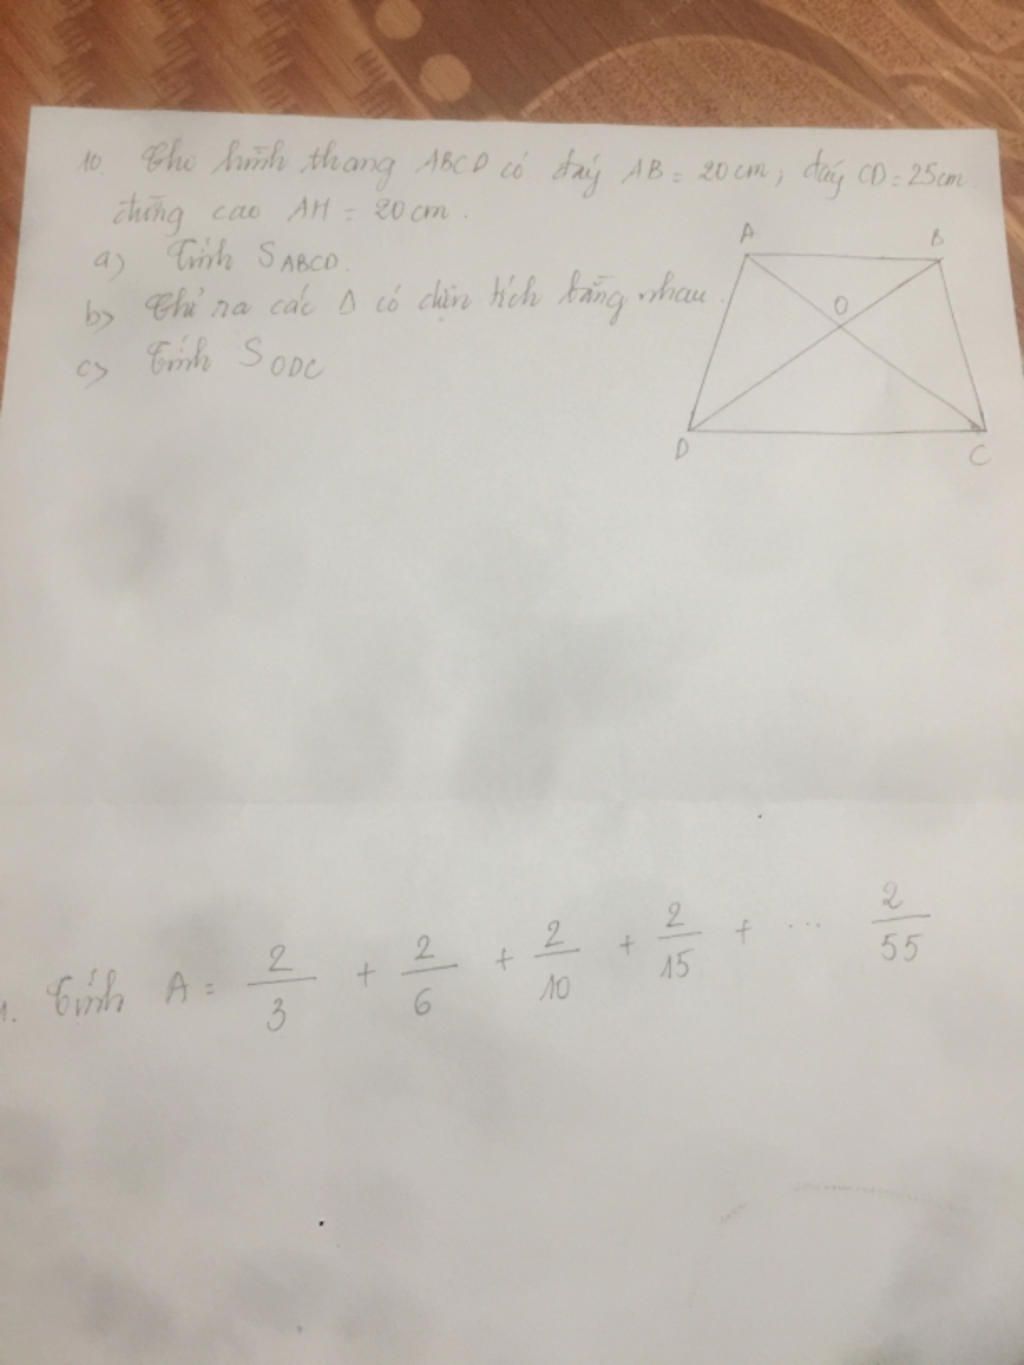 10. Cho hình thang ABCD có đáy AB = 20 cm; đáy CD = 25cm
đường cao AH = 20 cm.
a) Tính S ABCD.
b) Chỉ ra các Δ có diện tích bằng nhau.
c) Tính S ODC
A B
O
D C
1. Tính A = 2/3 + 2/6 + 2/10 + 2/15 + ... 2/55